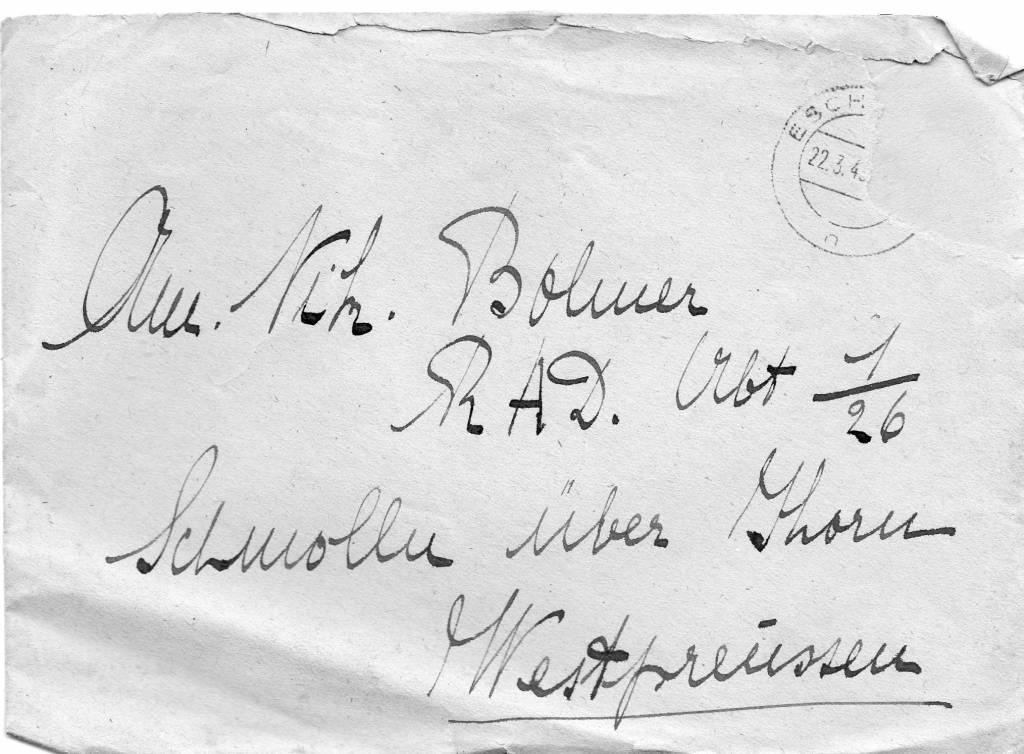 ESCH
22.3.4
Nik. Bohmer
RAD. Abt 1/26
Schmolln über Thorn
Westpreüssen